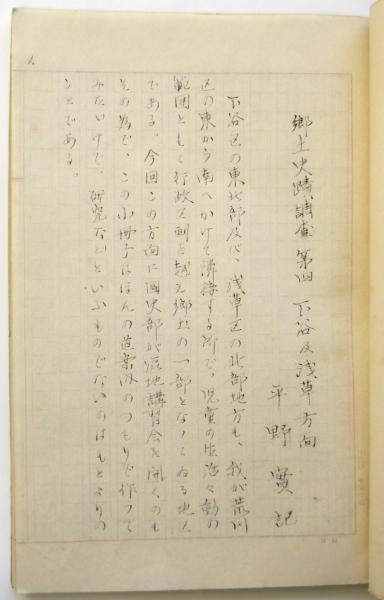 1.
郷土史蹟調査 第四 下谷及浅草方向
平野實記
下谷区の東北部及び、浅草区の北部地方も、我が荒川
区の東から南へかけて隣接する所で、児童の生活々動の
範囲として行政区劃を越え郷土の一部となってゐる地区
である。今回この方面に國史部が臨地講習会を開くのも
その為で、この小冊子はほんの茣蓙かのつもりで作って
みただけで、研究などといふものでないのはもとよりの
ことである。